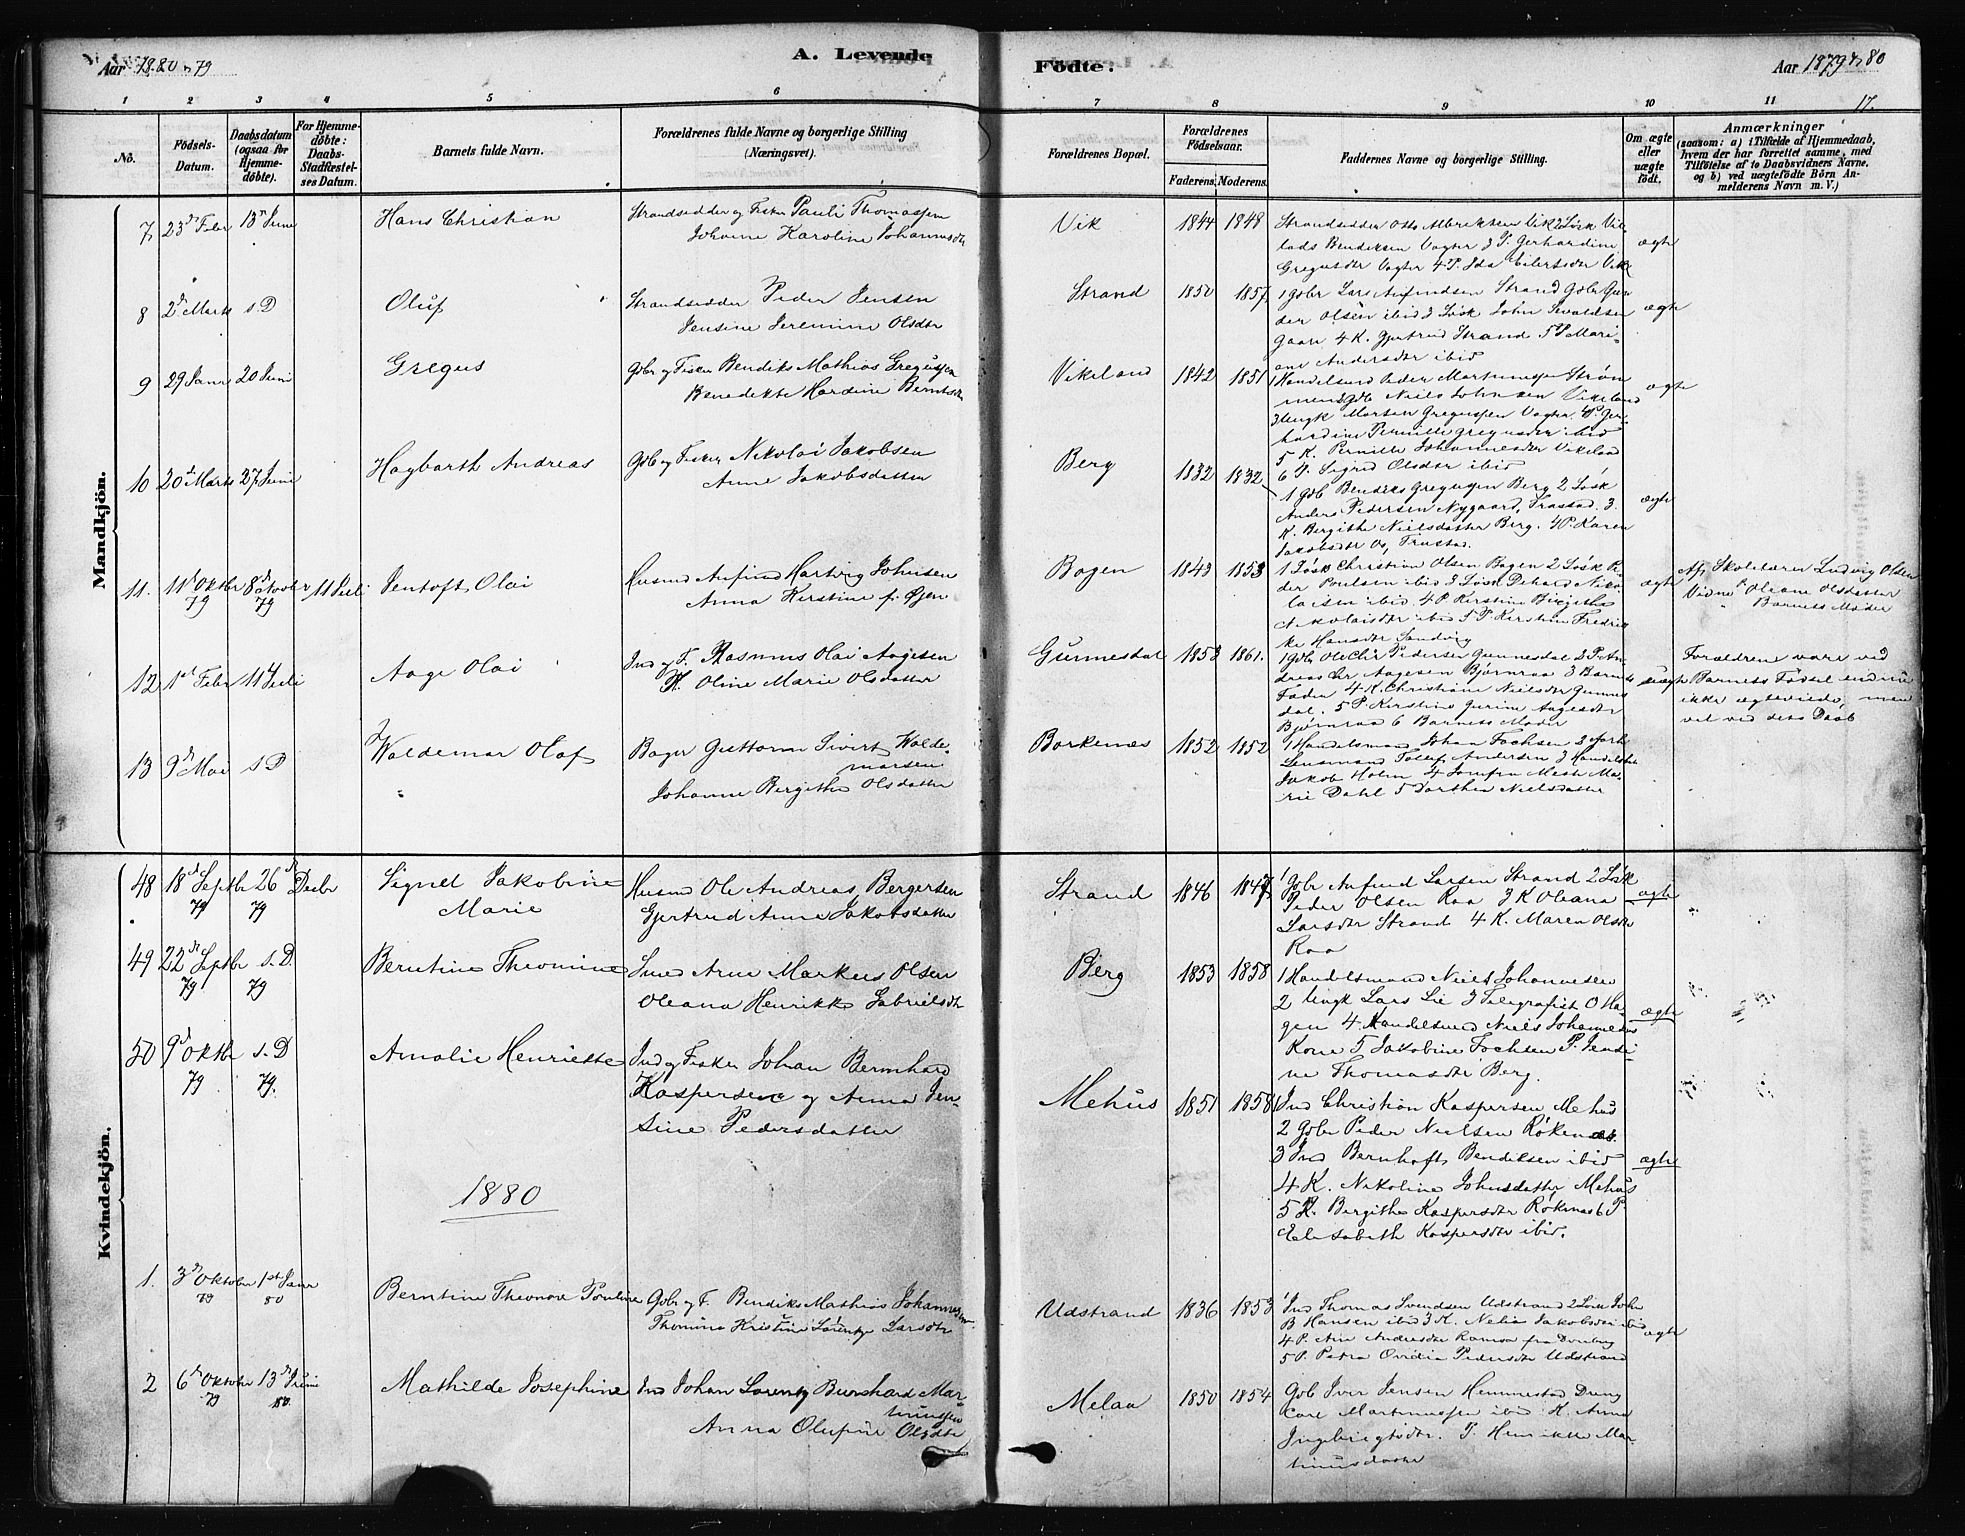 Aar 1880 & 79
A. Levende
Fødte.
Aar 1879 & 80
17.
1 2 3 4 5 6 7 8 9 10 11
No.
Födsels-Datum.
Daabsdatum (ogsaa for Hjemmedöbte).
For Hjemmedöbte: Daabs-Stadfæstelses Datum.
Barnets fulde Navn.
Forældrenes fulde Navne og borgerlige Stilling (Næringsvei).
Forældrenes Bopæl.
Forældrenes Födselsaar.
Faderens. Moderens.
Faddernes Navne og borgerlige Stilling.
Om ægte eller uægte født.
Anmærkninger
(saasom: a) i Tilfælde af Hjemmedaab, hvem der har forrettet samme, med Tilföielse af to Daabsvidners Navne, og b) ved uægtefödte Börn Anmelderens Navn m. V.)
Mandkjön.
7 23de Febr 13de Juni Hans Christian
Strandsidder og Fisker Pauli Thomassen
Johanne Karoline Johannesdtr
Vik 1844 1848
Strandsidder Otto Albriktsen Vik 2 Løsk Vil-
lads Bendiksen Vagter 3 P. Gerhardine
Gregusdtr Vagter 4 P. Ida Eilertsdtr Vik
ægte
8 2de Marts s. D Oluf
Strandsidder Peder Jensen
Jensine Jeremine Olsdtr
Strand 1850 1857
1 Gdbr Lars Anfindsen Strand Gdbr Gun-
der Olsen ibid 3 Løsk John Sevaldsen
Gaare 4 K. Gjertrud Strand 5 P Mari-
ane Andersdtr ibid
ægte
9 29 Janr 20 Juni Gregus
Gdbr og Fisker Bendiks Mathias Gregussen
Benedikte Hardine Berntsdtr
Vikeland 1842 1851
1 Handelsmd Peder Martinussen Strøm
men 2 Gdb Niels Johnsen Vikeland
3 Ungk Morten Gregussen Vagter 4 P. Ger-
hardine Pernille Gregusdtr ibid
5 K. Pernille Johannesdtr Vikeland
6 P. Sigrid Olsdtr ibid
ægte
10 20de Marts 27 Juni Hagbarth Andreas
Gdb og Fisker Nikolai Jakobsen
Anne Jakobsdatter
Berg 1832 1832
1 Gdb Bendiks Gregussen Berg 2 Løsk
Anders Pedersen Nygaard, Trastad. 3
K. Bergithe Nielsdatter Berg. 4 P. Karen
Jakobsdtr Os, Trastad.
ægte
11. 1ste Oktbr 79 8de Octobr 79 11 Juli Jentoft Olai
Husmd Anfind Hartvig Johnsen
Anna Kirstine f. Øjen
Bogen 1843 1853
1 Løsk Christian Olsen Bogen 2 Løsk Pe-
der Poulsen ibid 3 Løsk Dehard Niko-
laisen ibid. 4 P. Kirstine Birgithe
Nikolaisdtr ibid 5 P. Kirstine Fredrik-
ke Hansdtr Sandvig
ægte
Af Skolelærer Ludvig Olsen
Vidne Oleane Olsdatter
" Barnets Moder
12 1ste Febr 11 Juli Aage Olai
Ind og F. Rasmus Olai Aagesen
K. Oline Marie Olsdatter
Gunnesdal 1853 1861.
1 Gdbr Ole Chr Pedersen Gunnesdal 2 P. An-
dreas Chr Aagesen Bjørnraa 3 Barnets
Fader 4 K. Christiane Nielsdtr Gunnes
dal. 5 P Kirstine Gurine Aagesdtr
Bjørnraa 6 Barnets Moder
uægte
Forældrene vare ved
Barnets Fødsel endnu
ikke ægteviede, men
vel ved dets Daab
13 9de Mai s. D Waldemar Olaf
Bager Guttorm Sivert Walde-
marsen
Johanne Bergithe Olsdatter
Borkenæs 1852 1852
1 Handelsmand Johan Fochsen 2 forh
Lensmand Tollef Andersen 3 Handelsbt
Jakob Holm 4 Jomfru Mesk Ma-
rie Dahl 5 Dorthea Nielsdatter
Kvindekjön.
48 18de Septbr 79 26de Decbr 79 Signel Jakobine
Marie
Husmd Ole Andreas Bergersen
Gjertrud Anne Jakobsdatter
Strand 1846 1847
1 Gdbr Anfind Larsen Strand 2 Løsk
Peder Olsen Raa 3 K Oleana
Larsdtr Strand 4 K. Maren Olsdtr
Raa
ægte
49 22de Septbr 79 s. D. 79 Berntine Theomine
Smed Arne Markus Olsen
Oleana Henrikke Gabrielsdtr
Berg 1853 1858
1 Handelsmand Niels Johannesen
2 Ungk Lars Lie 3 Telegrafist O Ha-
gen 4 Handelsmd Niels Johannesens
Kone 5 Jakobine Fochsen P. Jensi-
ne Thomasdtr Berg.
ægte
50 9de Oktbr 79 s. D 79. Amalie Henriette
Ind og Fisker Johan Bernhard
Kaspersen og Anna Jen-
sine Pedersdatter
Mehus 1851 1858
1 Ind Christian Kaspersen Mehus
2 Gdbr Peder Nielsen Røkenæs.
3 Ind Bernhoft Bendiksen ibid
4 K. Nikoline Johnsdatter Mehus
5 K. Bergithe Kaspersdtr Røkenæs 6 P
Elisabeth Kaspersdtr ibid.
ægte
1880
1. 3de Oktober 79 1ste Janr 80 Berntine Theonore Pouline
Gdbr og F. Bendiks Mathias Johannessen
Thomine Kristine Lorentze Larsdtr
Udstrand 1836 1853
1 Ind Thomas Svendsen Udstrand 2 Løsk John
B Hansen ibid 3 K. Nelia Jakobsdtr ibid
4 P. Ane Andreasdtr Ramsaa fra Dverberg
5 P. Petra Ovidia Pedersdtr Udstrand
ægte
2 6de Oktober 79 13de Juni 80. Mathilde Josephine
Ind Johan Lorentz Burchard Mar-
tinussen
Anna Olufine Olsdtr
Melaa 1850 1854
Gdb Iver Jensen Hemmestad Dreng
Carl Martinussen ibid K. Anna
Ingebrigtsdtr. P. Henrikke Mar-
tinusdatter